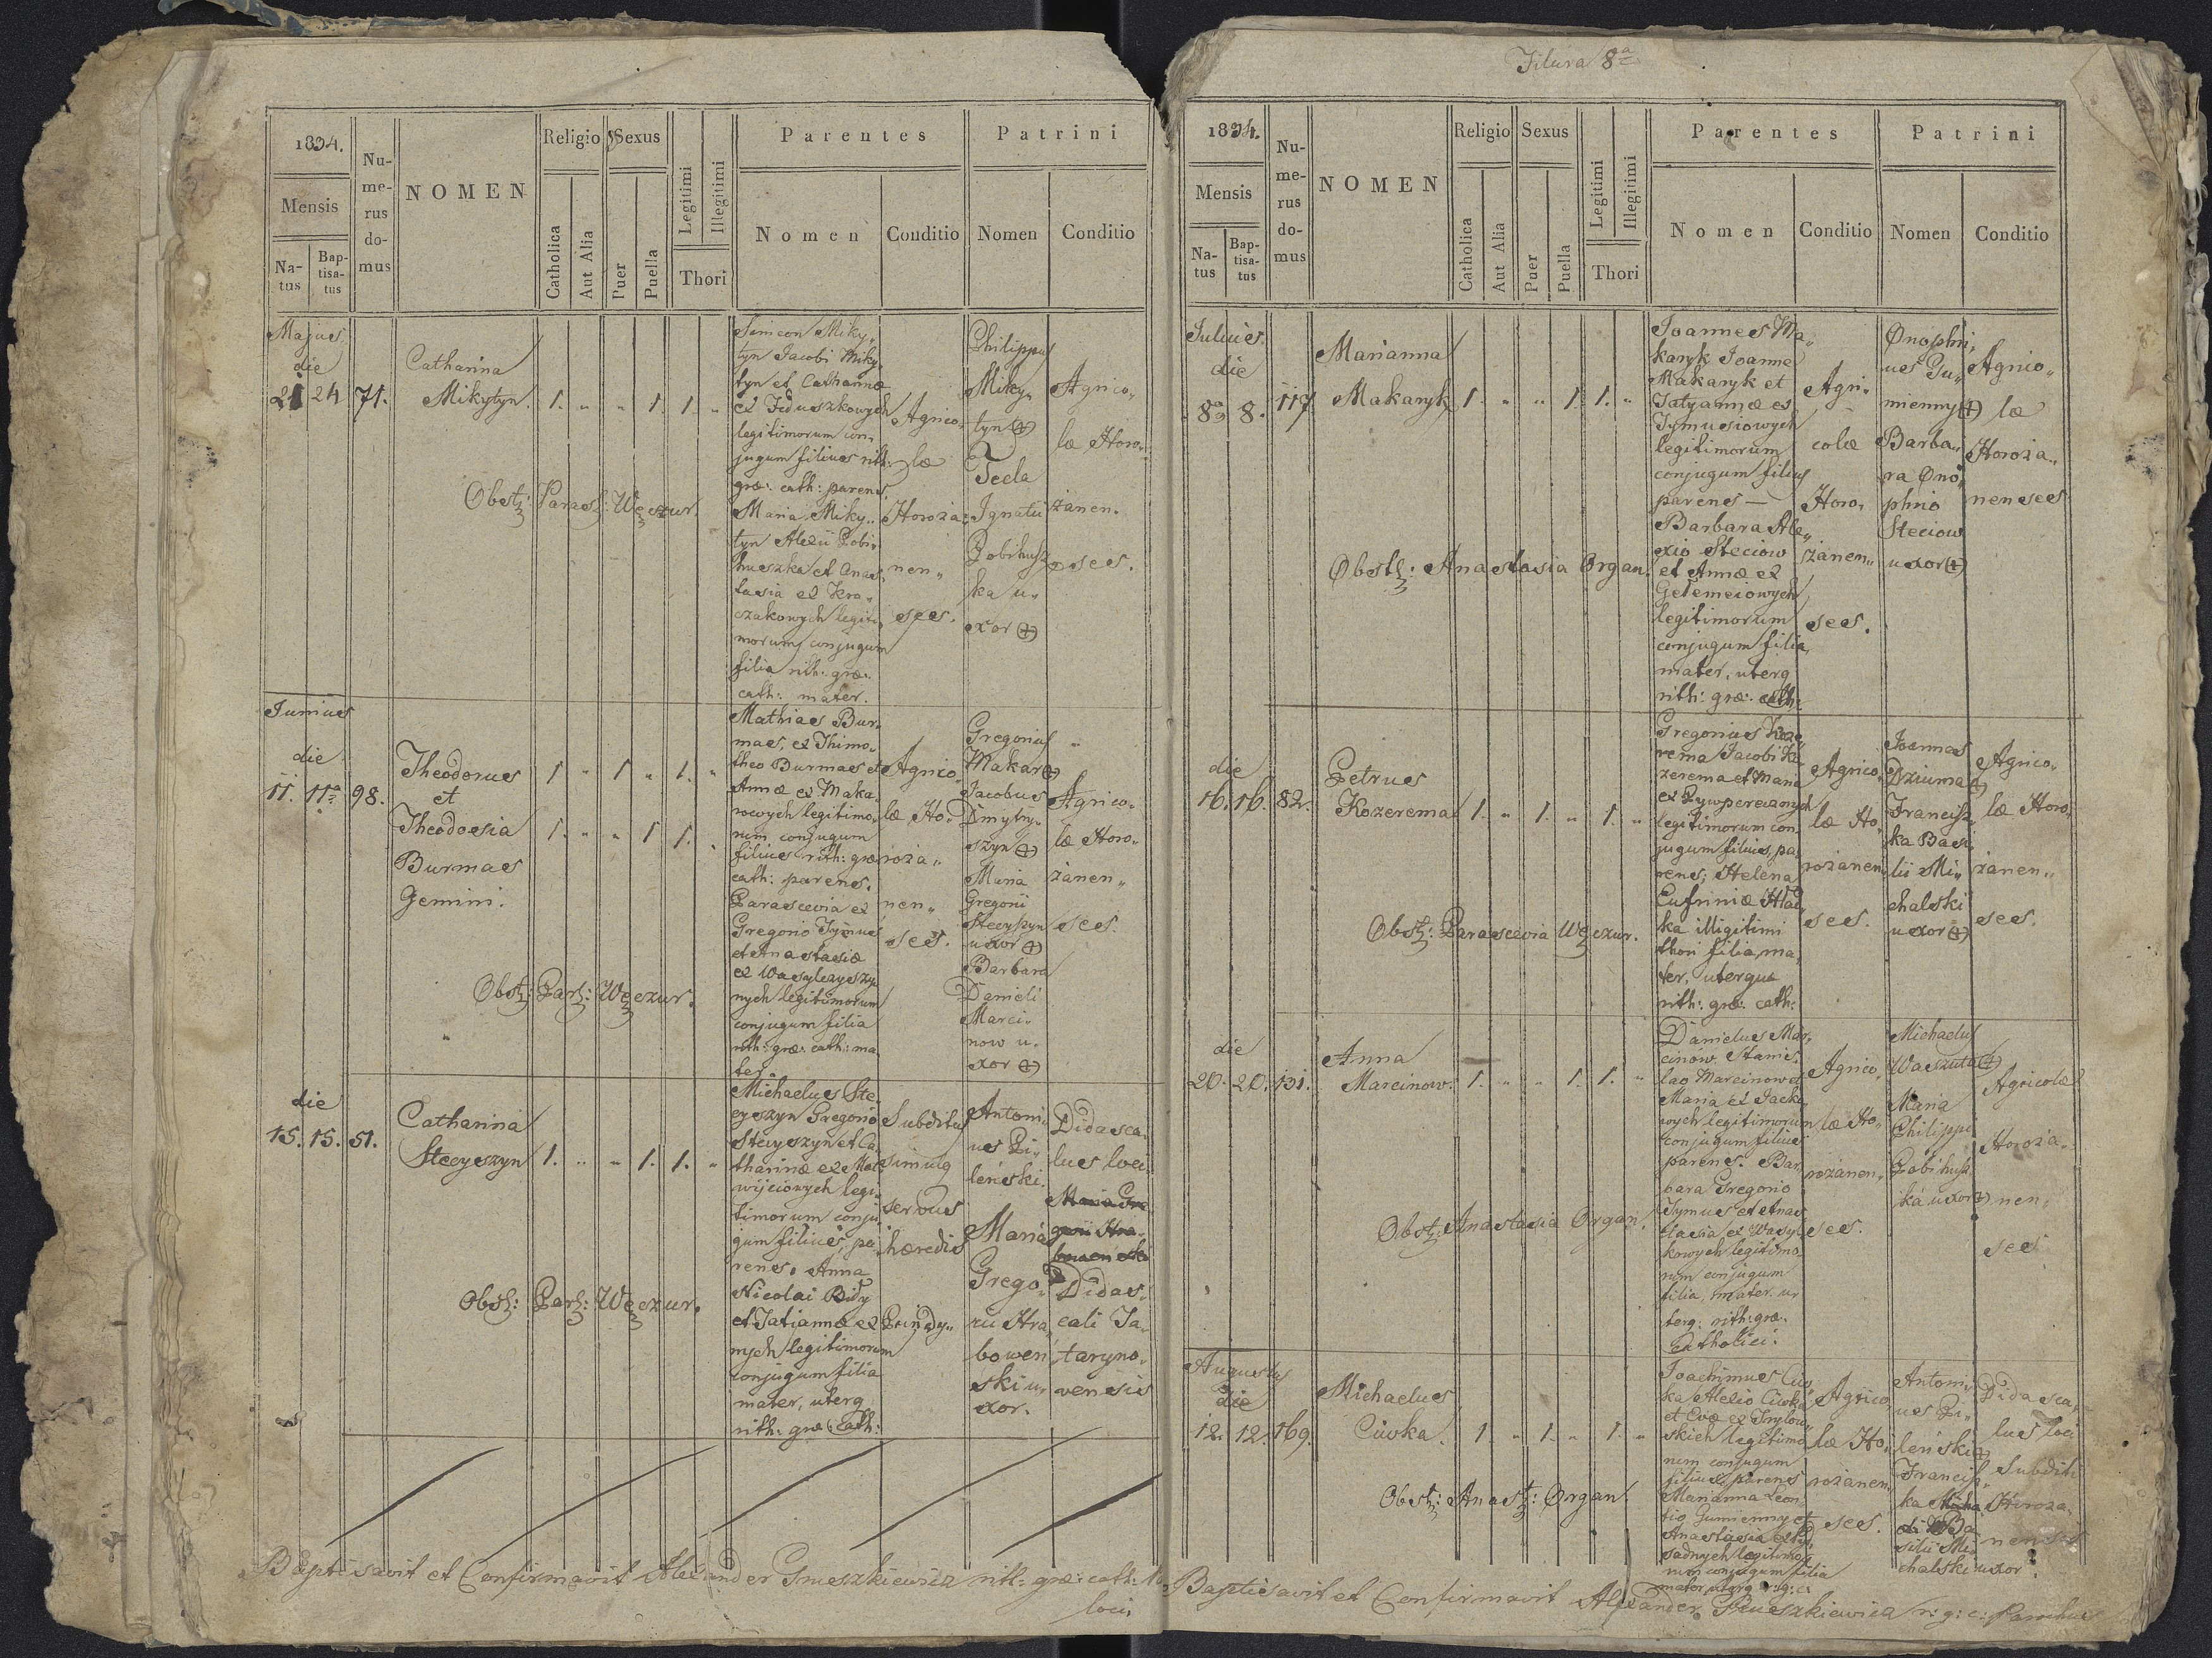 1834.
Mensis
Na-
tus
Bap-
tisa-
tus
Nu-
me-
rus
do-
mus
NOMEN
Religio
Catholica
Aut Alia
Sexus
Puer
Puella
Legitimi
Illegitimi
Thori
Parentes
Nomen
Conditio
Patrini
Nomen
Conditio
Majus
die
21 24 71.
Catharina
Mikytyn. 1. „ „ 1. 1. „
Obst: Parasc: Węczur.
Simeon Miky„
tyn Jacobi Miky„
tyn et Catharinæ
ex Feduszkowych
legitimorum con„
jugum filius rith:
græ: cath: parens.
Maria Miky„
tyn Alexii Pobi„
huszka et Anas„
tasia ex Kra„
czakowych legiti„
morum conjugum
filia rith: græ:
cath: mater.
Agrico„
læ
Horoża„
nen„
ses.
Philippus
Miky„
tyn (+)
Tecla
Ignatii
Pobihusz
ka u„
xor (+)
Agrico„
læ Horo„
żanen„
ses.
Junius
die
11. 11ª 98.
Theodorus 1 „ 1 „ 1. „
et
Theodosia 1. „ „ 1 1. „
Burmas
Gemini.
Obst: Par: Węczur.
Mathias Bur„
mas, ex Thimo„
theo Burmas et
Annæ ex Maka„
rowych legitimo„
rum conjugum
filius rith: græ
cath: parens.
Parascevia ex
Gregorio Tymus
et Anastasiæ
ex Wasylczyszy
nych legitimorum
conjugum filia
rith: græ: cath: ma„
ter.
Agrico„
læ Ho„
roża„
nen„
ses.
Gregorius
Makar (+)
Jacobus
Dmytry„
szyn (+)
Maria
Gregorii
Stecyszyn
uxor (+)
Barbara
Danieli
Marci„
now u„
xor (+)
Agrico„
læ Horo„
żanen„
ses.
die
15. 15. 51.
Catharina
Stecyszyn 1. „ „ 1. 1. „
Obst: Par: Węczur.
Michaelus Ste„
cyszyn Gregorio
Stecyszyn et Ca„
tharinæ ex Mat
wijciowych legi„
timorum conju„
gum filius, pa„
rens. Anna
Nicolai Bidy
et Tatianna ex
nych legitimorum
conjugum filia
mater, uterq
rith: græ: Cath:
Subditus
simulq
servus
hæredis
Antoni„
us Pi„
leński.
Maria
Grego„
rii Hra„
bowień
ski u„
xor.
Didasca„
lus loci
Didas„
cali Ta„
taryno„
vensis
Baptisavit et Confirmavit Alexander Gruszkiewicz rith: græ: cath:
loci
Filura 8ª
1834.
Mensis
Na-
tus
Bap-
tisa-
tus
Nu-
me-
rus
do-
mus
NOMEN
Religio
Catholica
Aut Alia
Sexus
Puer
Puella
Legitimi
Illegitimi
Thori
Parentes
Nomen
Conditio
Patrini
Nomen
Conditio
Julius
die
8ª 8. 117
Marianna
Makaryk 1. „ „ 1. 1. „
Obst: Anastasia Organ.
Joannes Ma„
karyk Joanne
Makaryk et
Tatyannæ ex
Tymusiowych
legitimorum
conjugum filius
parens —
Barbara Ale„
xio Steciow
et Annæ ex
legitimorum
conjugum filia
mater, uterq
rith: græ: cath:
Agri„
colæ
Horo„
żanen„
ses.
Onophri„
us Gu„
mienny (+)
Barba„
ra Ono„
phrio
Steciow
uxor (+)
Agrico„
læ
Horoża„
nenses
die
16. 16. 82.
Petrus
Kozerema 1. „ 1. „ 1. „
Obst: Parascevia Węczur.
Gregorius Koze„
rema Jacobi Ko„
zerema et Maria
legitimorum con„
jugum filius, pa„
rens, Helena
Eufriniæ Hład„
ka illigitimi
thori filia, ma„
ter, uterque
rith: græ: cath:
Agrico„
læ Ho„
rożanen„
ses.
Joannes
Dziuma (+)
Francisz„
ka Basi„
lii Mi„
chalski
uxor (+)
Agrico„
læ Horo„
żanen„
ses.
die
20. 20. 131.
Anna
Marcinow. 1. „ „ 1. 1. „
Obst: Anastasia Organ.
Danielus Mar„
cinow Stanis„
lao Marcinow et
Maria ex Jacko„
wych legitimorum
conjugum filius
parens. Bar„
bara Gregorio
Tymus et Anas„
tasia ex Wasyl„
kowych legitimo„
rum conjugum
filia, mater, u„
terq: rith: græ:
Catholici.
Agrico„
læ Ho„
rożanen„
ses.
Michaelus
Waszuta (+)
Maria
Philippi
Pobihusz
ka uxor (+)
Agricolæ
Horoża„
nen„
ses
Augustus
die
12. 12. 169.
Michaelus
Ciwka. 1. „ 1. „ 1. „
Obst: Anast: Organ.
Joachimus Ciw„
ka Alexio Ciwka
et Evæ ex Trylow„
skich legitimo„
rum conjugum
filius, parens
Marianna Leon„
tio Gumienny et
Anastasia ex
sadnych legitimo„
rum conjugum filia
mater uterq r: g: c:
Agrico„
læ Ho„
rożanen„
ses.
Antoni„
us Pi„
leński (+)
Francisz„
ka
Ba„
silii Mi„
chalski uxor
Didasca„
lus loci
Subditi
Horoża„
nenses
Baptisavit et Confirmavit Alexander Gruszkiewicz r: g: c: Parochus